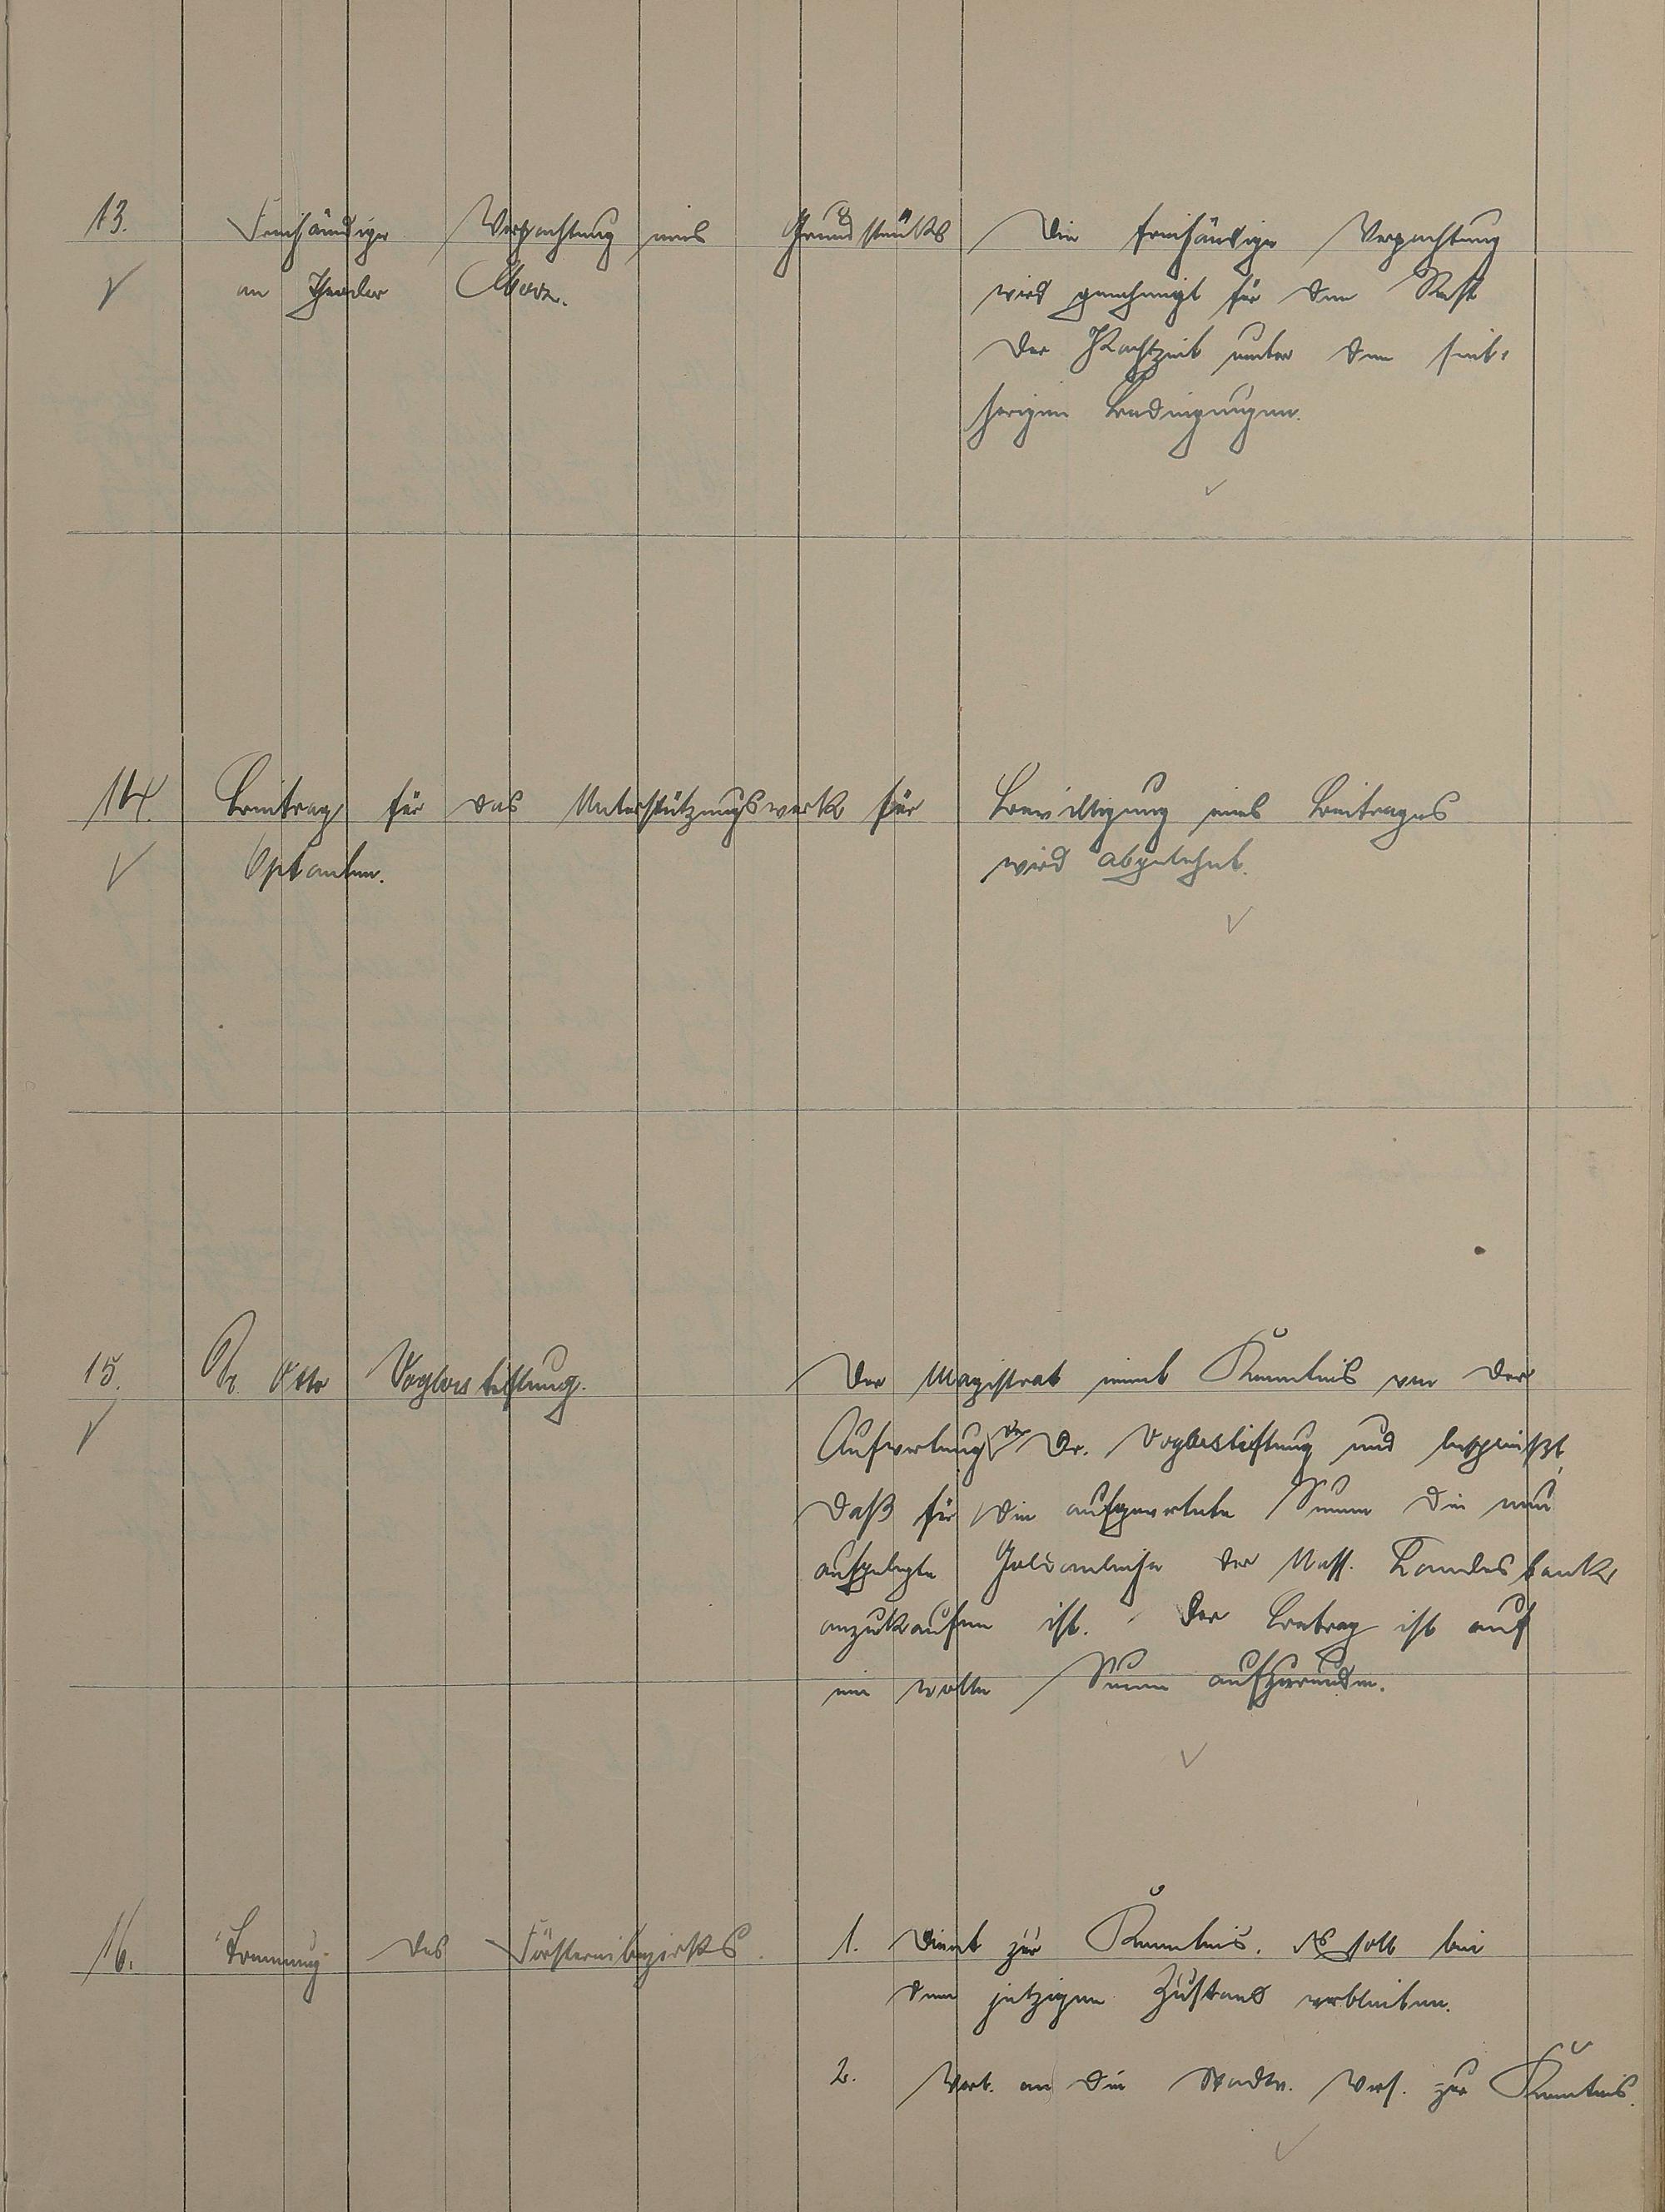 13. Freihändige Verpachtung eines Grundstücks
an Theodor
Die freihändige Verpachtung
wird genehmigt für den Rest
der Pachtzeit unter den seit-
herigen Bedingungen.
14. Beitrag für das Unterstützungswerk für
Optanten.
Bewilligung eines Beitrages
wird abgelehnt.
15. Dr. Otto Voglerstiftung.
Der Magistrat nimt Kenntnis von der
Aufwertung der Dr. Voglerstiftung und beschließt,
daß für die aufgewertete Summe die neu
aufgelegte Goldanleihe der Nass. Landesbank
anzukaufen ist. Der Betrag ist auf
ein volle Summe aufzurunden.
16. Trennung des Försterei bezirks.
1. Dient zur Kenntnis. Es soll bei
dem jetzigen Zustand verbleiben.
2. Vort. an die Stadtv. Vers. zur Kenntnis.